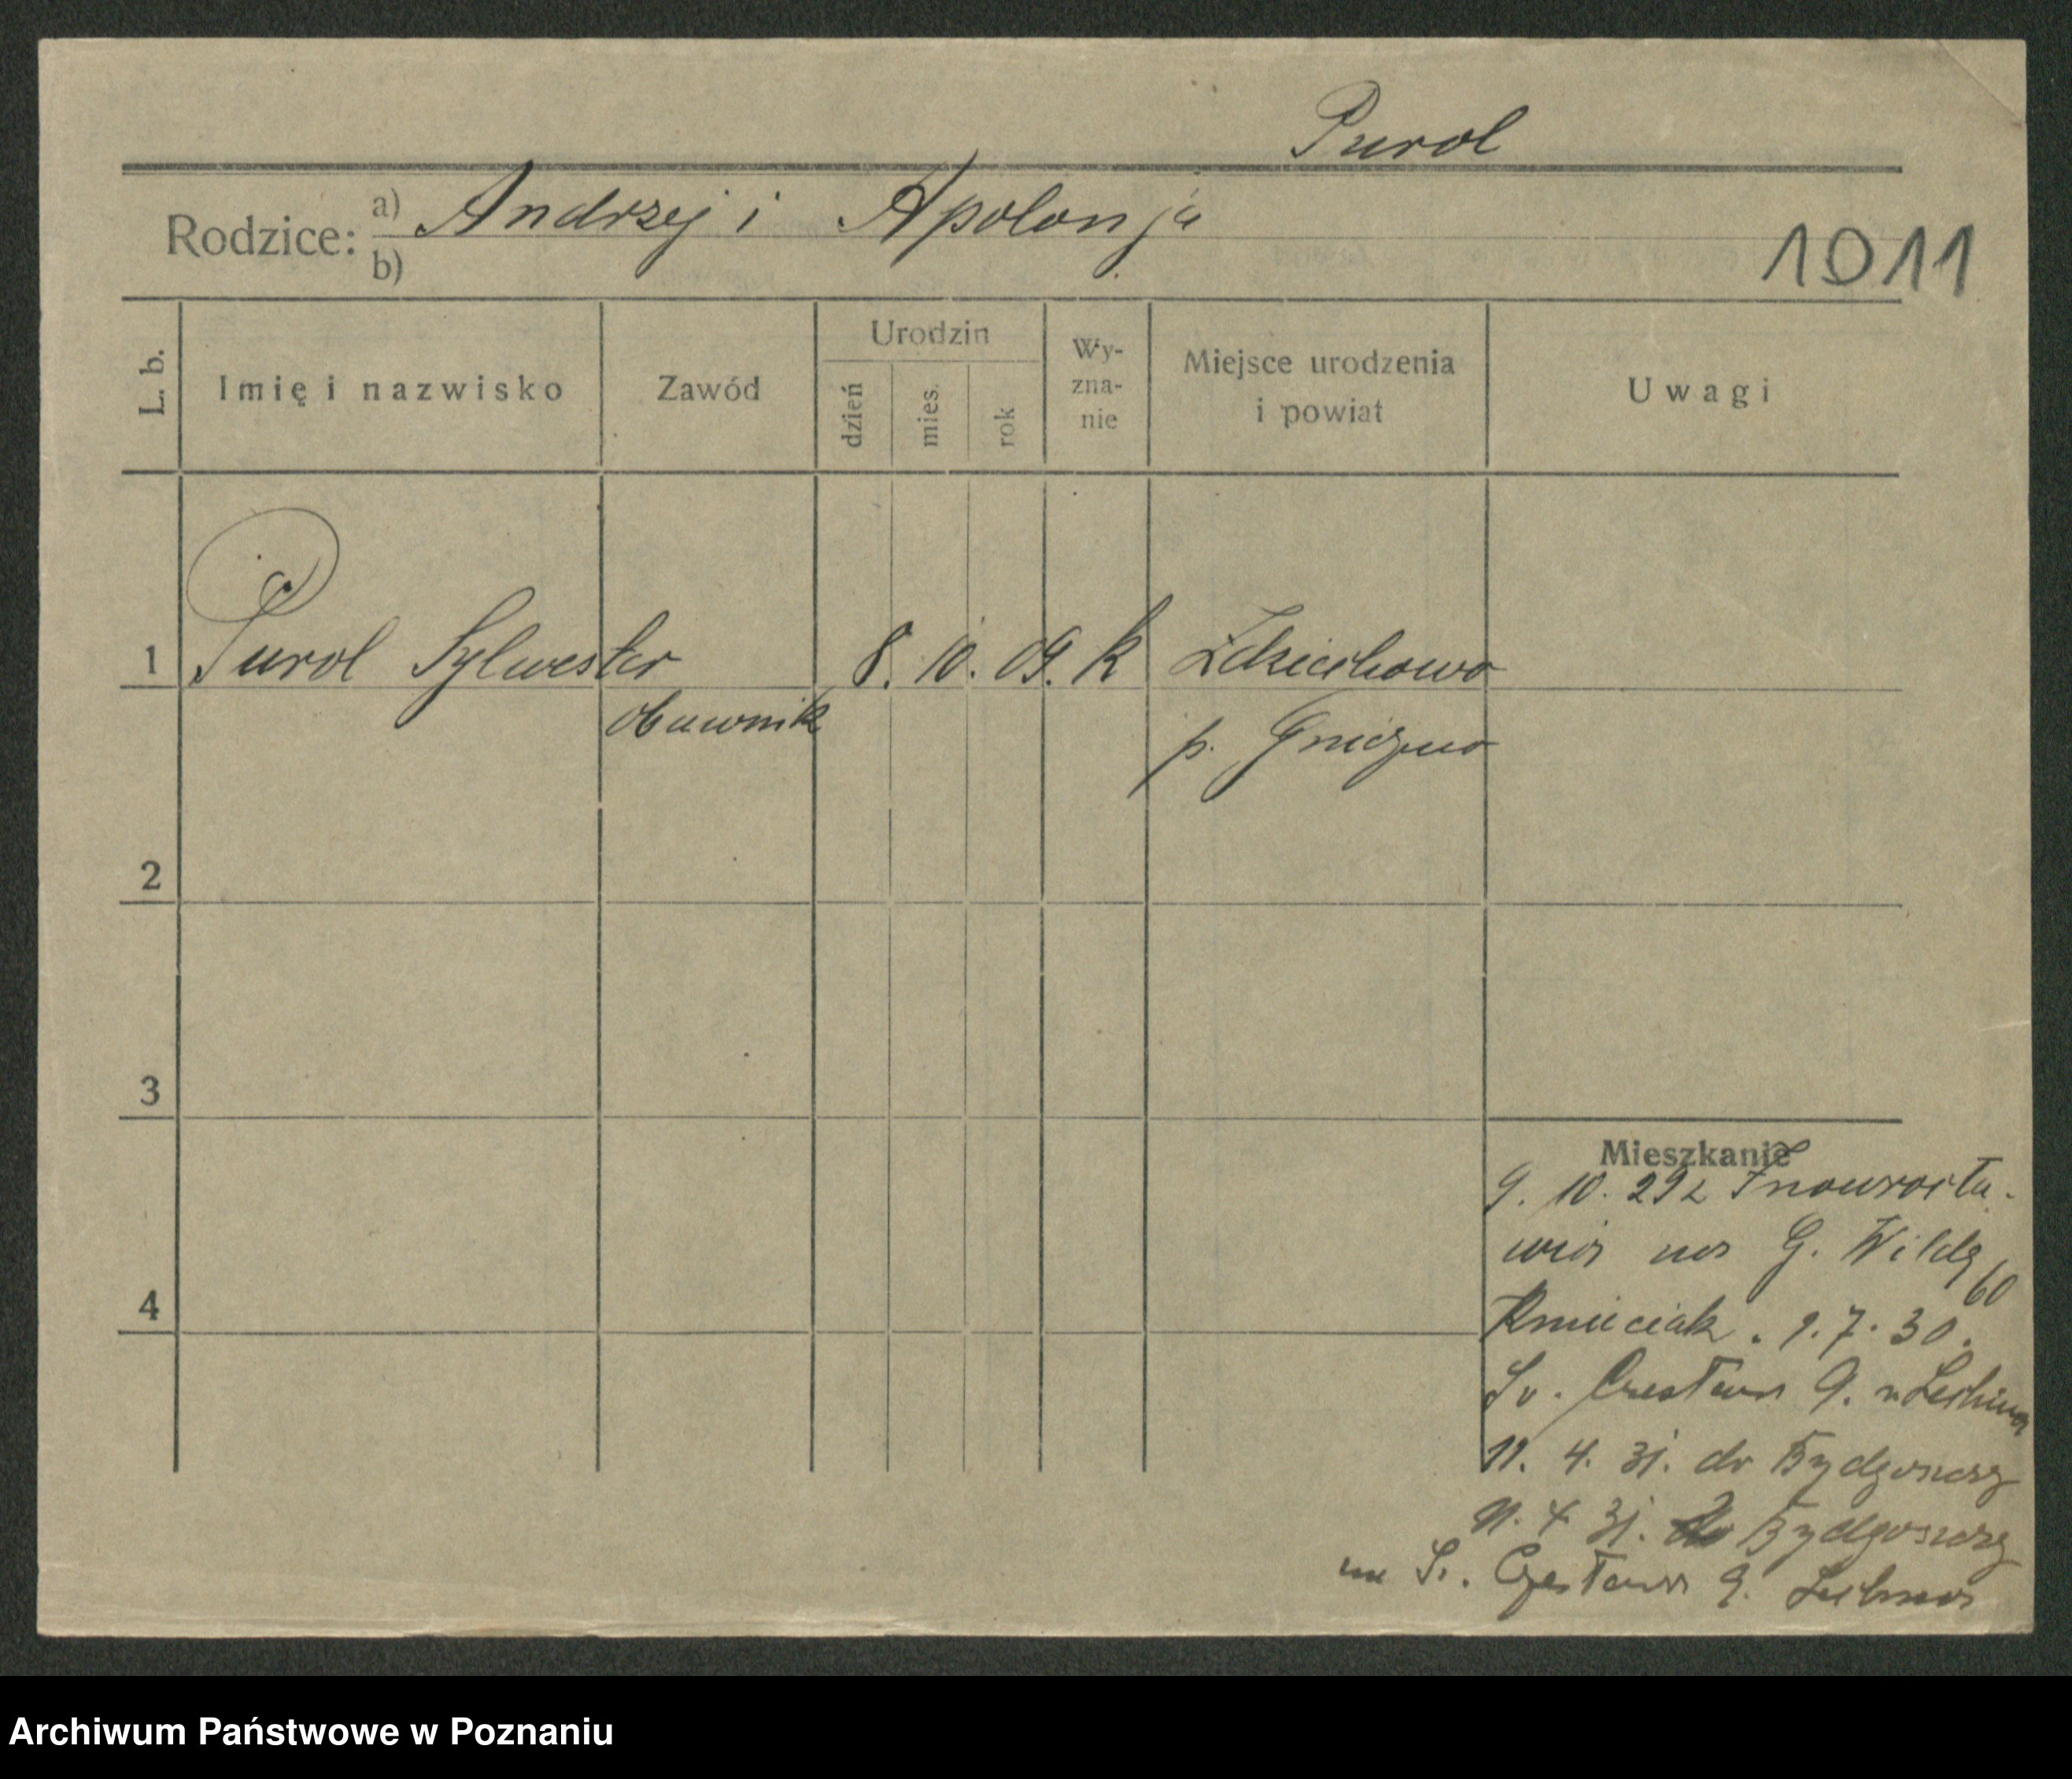 Purol
Rodzice: a) Andrzej i Apolonja
b)
1011
L. b.
Imię i nazwisko
Zawód
Urodzin
dzień
mies.
rok
Wy-
zna-
nie
Miejsce urodzenia
i powiat
Uwagi
1 Purol Sylwester 8. 10. 09. k Zdziechowa
obuwnik p. Gniezno
2
3
4
Mieszkanie
9. 10. 29 z Inowrocła-
wia na G. Wildę 60
Kmieciak. 1. 7. 30.
Św. Czesława 9. Lechna
11. 4. 31. do Bydgoszcz
11. 4. 31. Bydgoszcz
na Św. Czesława 9. Lechna
Archiwum Państwowe w Poznaniu